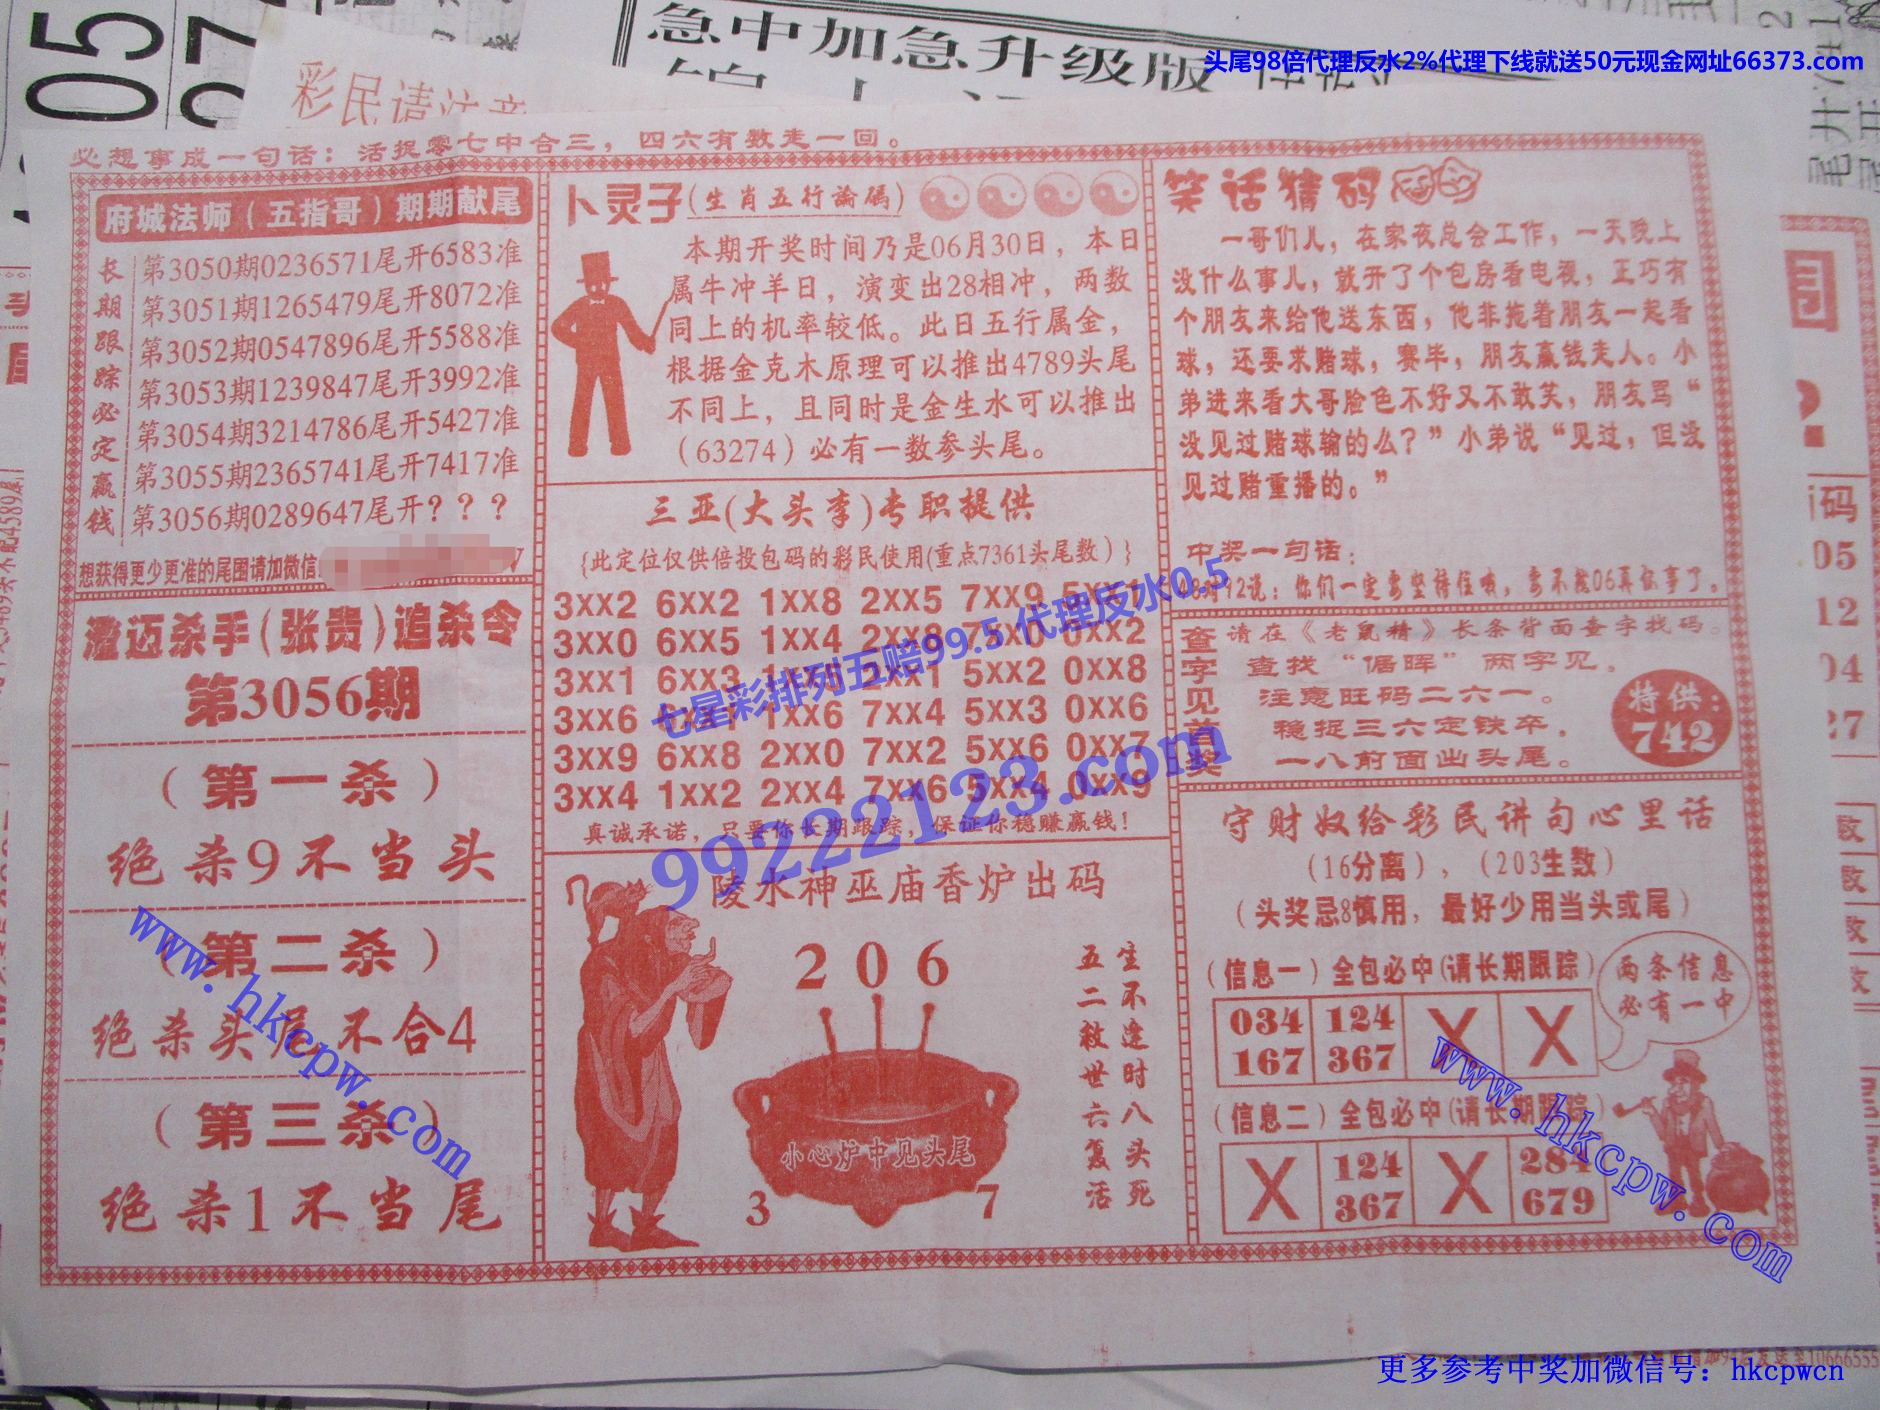 急中加急升级版
头尾98倍代理反水2%代理下线就送50元现金网址66373.com
05
彩民请注意
必想事成一句话：活捉零七中合三，四六有数走一回。
府城法师（五指哥）期期献尾
长期跟踪必定赢钱
第3050期0236571尾开6583准
第3051期1265479尾开8072准
第3052期0547896尾开5588准
第3053期1239847尾开3992准
第3054期3214786尾开5427准
第3055期2365741尾开7417准
第3056期0289647尾开？？？
想获得更少更准的尾围请加微信
澄迈杀手（张贵）追杀令
第3056期
（第一杀）
绝杀9不当头
（第二杀）
绝杀头尾不合4
（第三杀）
绝杀1不当尾
卜灵子（生肖五行論碼）
本期开奖时间乃是06月30日，本日
属牛冲羊日，演变出28相冲，两数
同上的机率较低。此日五行属金，
根据金克木原理可以推出4789头尾
不同上，且同时是金生水可以推出
（63274）必有一数参头尾。
三亚（大头李）专职提供
{此定位仅供倍投包码的彩民使用(重点7361头尾数）}
3XX2 6XX2 1XX8 2XX5 7XX9 5XX1
3XX0 6XX5 1XX4 2XX8 7XX0 0XX2
3XX1 6XX3 2XX1 5XX2 0XX8
3XX6 1XX6 7XX4 5XX3 0XX6
3XX9 6XX8 2XX0 7XX2 5XX6 0XX7
3XX4 1XX2 2XX4 7XX6 5XX4 0XX9
真诚承诺，只要你长期跟踪，保证你稳赚赢钱！
七星彩排列五赔99.5 代理反水0.5
99222123.com
陵水神巫庙香炉出码
2 0 6
小心炉中见头尾
3 7
生不逢时八头死
五二救世六复活
笑话猜码
一哥们儿，在家夜总会工作，一天晚上
没什么事儿，就开了个包房看电视，正巧有
个朋友来给他送东西，他非拖着朋友一起看
球，还要求赌球，赛毕，朋友赢钱走人。小
弟进来看大哥脸色不好又不敢笑，朋友骂“
没见过赌球输的么？”小弟说“见过，但没
见过赌重播的。”
中奖一句话：
48对92说：你们一定要坚持住哦，要不然06真你事了。
查字见首奖
请在《老鼠精》长条背面查字找码。
查找“倨晖”两字见。
注意旺码二六一。
稳捉三六定铁卒，
一八前面出头尾。
特供：
742
守财奴给彩民讲句心里话
（16分离），（203生数）
（头奖忌8慎用，最好少用当头或尾）
（信息一）全包必中(请长期跟踪)
034 124 X X
167 367
两条信息
必有一中
（信息二）全包必中(请长期跟踪)
X 124 X 284
367 679
www.hkcpw.com
www.hkcpw.com
更多参考中奖加微信号：hkcpwcn